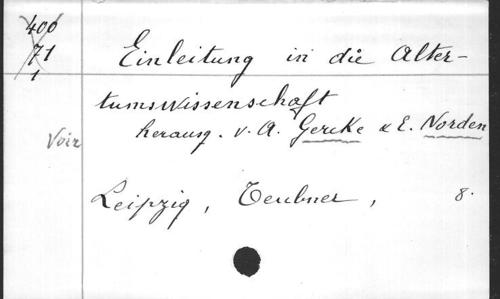 400
71
1
Einleitung in die Alter-
tumswissenschaft
Voir
herausg. v. A. Gercke & E. Norden
Leipzig, Teubner, 8.